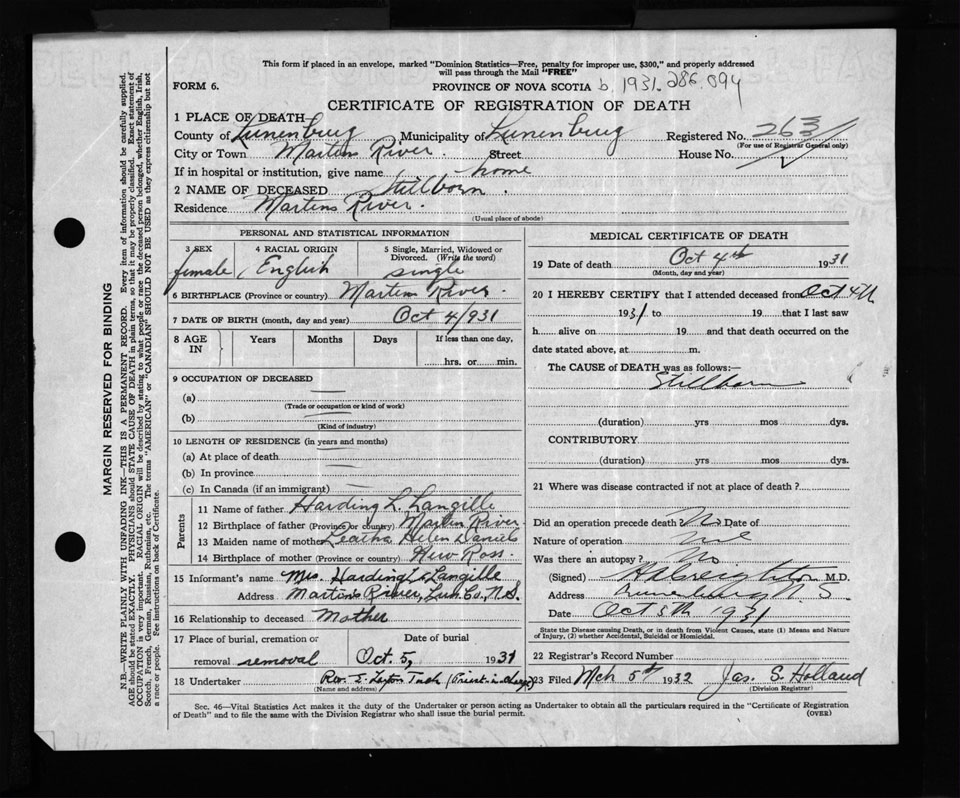 This form if placed in an envelope, marked "Dominion Statistics—Free, penalty for improper use, $300," and properly addressed
will pass through the Mail "FREE"
FORM 6. PROVINCE OF NOVA SCOTIA b. 1931. 286.094
CERTIFICATE OF REGISTRATION OF DEATH
1 PLACE OF DEATH
County of Lunenburg Municipality of Lunenburg Registered No. 263
(For use of Registrar General only)
City or Town Martins River. Street House No.
If in hospital or institution, give name home
2 NAME OF DECEASED Stillborn.
Residence Martins River.
(Usual place of abode)
PERSONAL AND STATISTICAL INFORMATION
3 SEX 4 RACIAL ORIGIN 5 Single, Married, Widowed or
Divorced. (Write the word)
female, English single
6 BIRTHPLACE (Province or country) Martins River.
7 DATE OF BIRTH (month, day and year) Oct 4/931
8 AGE IN Years Months Days If less than one day,
hrs. or min.
9 OCCUPATION OF DECEASED
(a)
(Trade or occupation or kind of work)
(b)
(Kind of industry)
10 LENGTH OF RESIDENCE (in years and months)
(a) At place of death
(b) In province
(c) In Canada (if an immigrant)
Parents
11 Name of father Harding L. Langille
12 Birthplace of father (Province or country) Martins River.
13 Maiden name of mother Leatha Helen Daniels
14 Birthplace of mother (Province or country) New Ross.
15 Informant's name Mrs. Harding L. Langille
Address Martins River, Lun. Co., N.S.
16 Relationship to deceased Mother
17 Place of burial, cremation or Date of burial
removal removal Oct. 5, 1931
18 Undertaker Rev. E. Layton (Priest in charge)
(Name and address)
MEDICAL CERTIFICATE OF DEATH
19 Date of death Oct 4th 1931
(Month, day and year)
20 I HEREBY CERTIFY that I attended deceased from Oct 4th
1931 to 19 that I last saw
h alive on 19 and that death occurred on the
date stated above, at m.
The CAUSE of DEATH was as follows:
Stillborn
(duration) yrs mos dys.
CONTRIBUTORY
(duration) yrs mos dys.
21 Where was disease contracted if not at place of death?
Did an operation precede death? No Date of
Nature of operation
Was there an autopsy? No
(Signed) Creighton M.D.
Address Lunenburg N.S.
Date Oct 5th 1931
State the Disease causing Death, or in death from Violent Causes, state (1) Means and Nature
of Injury, (2) whether Accidental, Suicidal or Homicidal.
22 Registrar's Record Number
23 Filed Mch 5th 1932 Jas. S. Holland
(Division Registrar)
Sec. 46—Vital Statistics Act makes it the duty of the Undertaker or person acting as Undertaker to obtain all the particulars required in the "Certificate of Registration
of Death" and to file the same with the Division Registrar who shall issue the burial permit. (OVER)
MARGIN RESERVED FOR BINDING
N.B.—WRITE PLAINLY WITH UNFADING INK—THIS IS A PERMANENT RECORD. Every item of information should be carefully supplied.
AGE should be stated EXACTLY. PHYSICIANS should STATE CAUSE OF DEATH in plain terms, so that it may be properly classified. Exact statement of
OCCUPATION is very important. RACIAL ORIGIN will be described by stating to what people or race the deceased person belonged, whether English, Irish,
Scotch, French, German, Russian, Ruthenian, etc. The terms "AMERICAN" or "CANADIAN" SHOULD NOT BE USED as they express citizenship but not
a race or people. Fee instructions on back of Certificate.